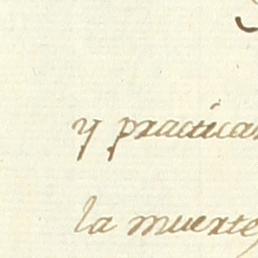 y practicar
la muerte,